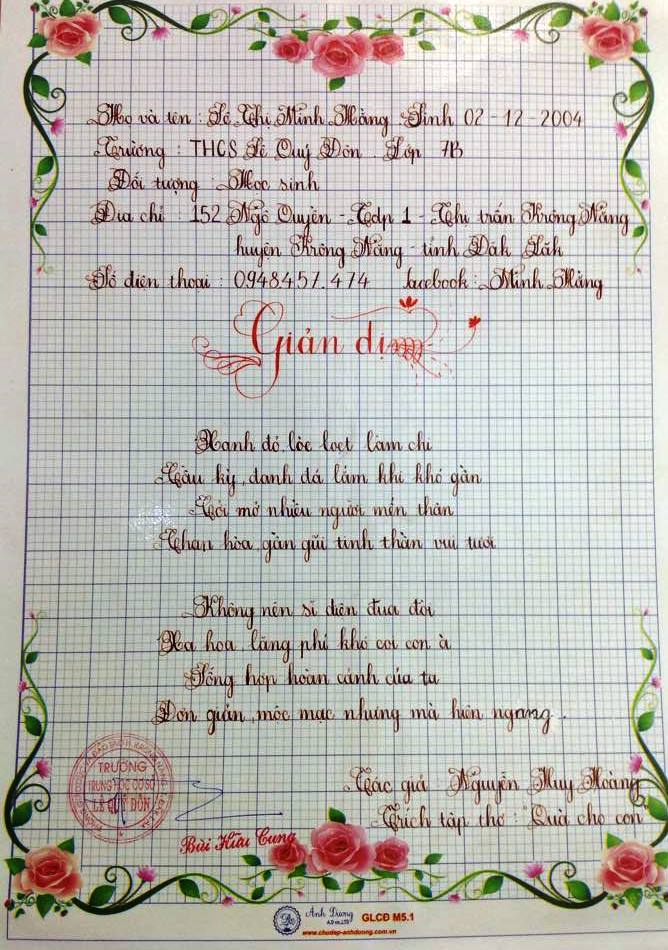 Họ và tên : Lê Thị Minh Hằng Sinh 02 - 12 - 2004
Trường : THCS Lê Quý Đôn . Lớp 7B
Đối tượng : Học sinh
Địa chỉ : 152 Ngô Quyền - Tdp 1 - Thị trấn Krông Năng
huyện Krông Năng - tỉnh Đăk Lăk
Số điện thoại : 0948.457.474 facebook : Minh Hằng
Giản dị
Xanh đỏ, lòe loẹt làm chi
Cầu kỳ, đanh đá lắm khi khó gần
Cởi mở nhiều người mến thân
Chan hòa, gần gũi tinh thần vui tươi
Không nên sĩ diện đua đòi
Xa hoa, lãng phí khó coi con à
Sống hợp hoàn cảnh của ta
Đơn giản, mộc mạc nhưng mà hiên ngang.
Tác giả : Nguyễn Huy Hoàng
Trích tập thơ : Quà cho con
TRƯỜNG
TRUNG HỌC CƠ SỞ
LÊ QUÝ ĐÔN
Bùi Hữu Cung
Ánh Dương
GLCĐ M5.1
www.chudep-anhduong.com.vn